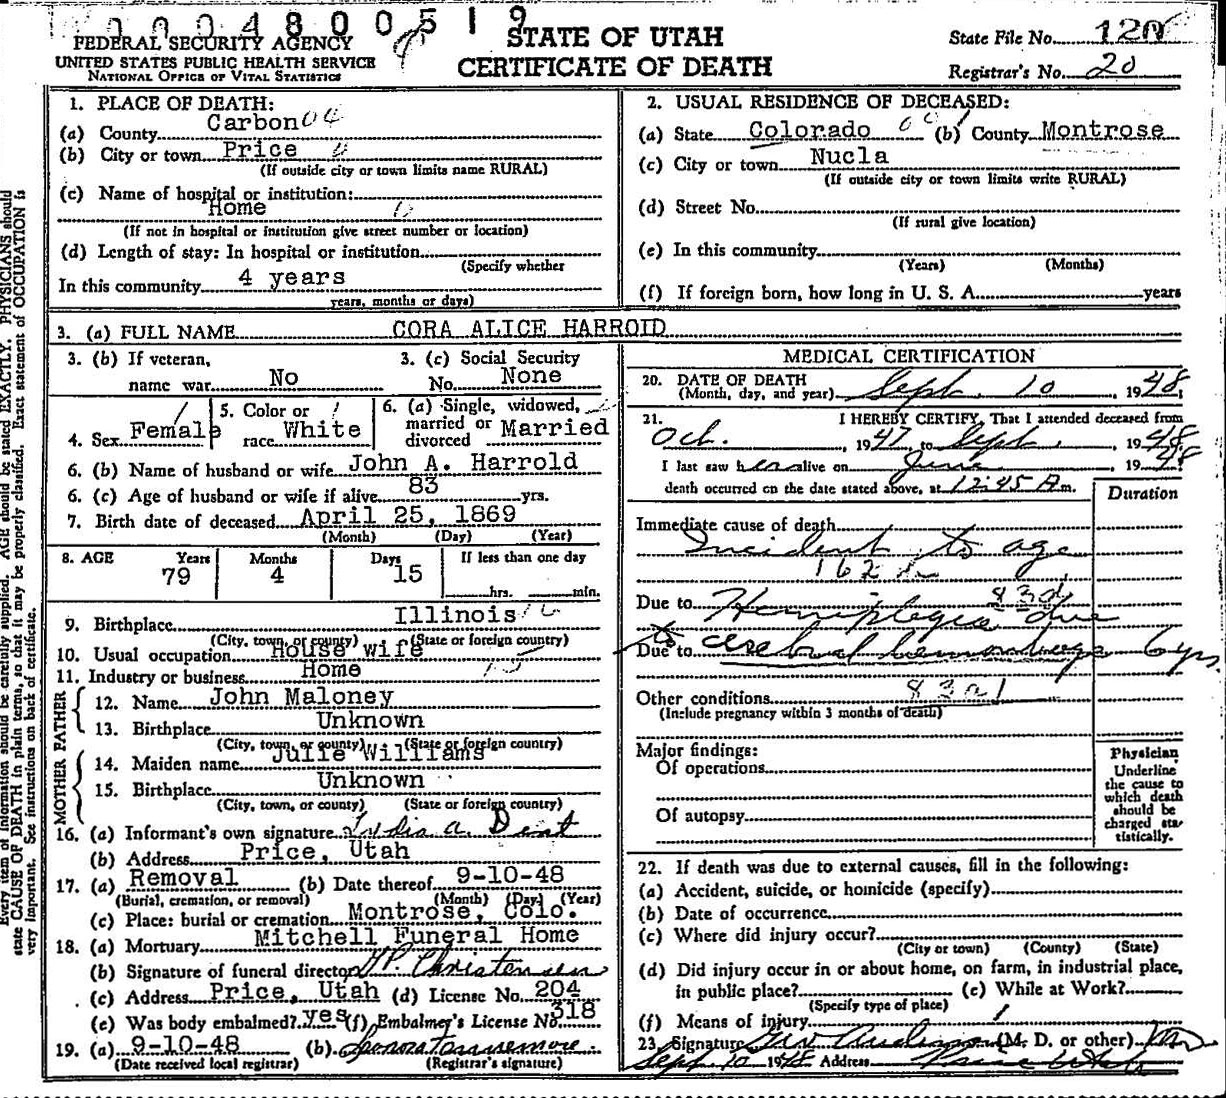 0004800519
FEDERAL SECURITY AGENCY
UNITED STATES PUBLIC HEALTH SERVICE
NATIONAL OFFICE OF VITAL STATISTICS
STATE OF UTAH
CERTIFICATE OF DEATH
State File No.
Registrar's No. 20
1. PLACE OF DEATH:
(a) County Carbon 04
(b) City or town Price
(If outside city or town limits name RURAL)
(c) Name of hospital or institution:
Home
(If not in hospital or institution give street number or location)
(d) Length of stay: In hospital or institution
(Specify whether
In this community 4 years
years, months or days)
2. USUAL RESIDENCE OF DECEASED:
(a) State Colorado (b) County Montrose
(c) City or town Nucla
(If outside city or town limits write RURAL)
(d) Street No.
(If rural give location)
(e) In this community
(Years) (Months)
(f) If foreign born, how long in U. S. A. years
3. (a) FULL NAME CORA ALICE HARROID
3. (b) If veteran, 3. (c) Social Security
name war No No. None
4. Sex Female 5. Color or race White 6. (a) Single, widowed, married or divorced Married
6. (b) Name of husband or wife John A. Harrold
6. (c) Age of husband or wife if alive 83 yrs.
7. Birth date of deceased April 25, 1869
(Month) (Day) (Year)
8. AGE Years Months Days If less than one day
79 4 15 hrs. min.
9. Birthplace Illinois
(City, town, or county) (State or foreign country)
10. Usual occupation House wife
11. Industry or business Home
FATHER
12. Name John Maloney
13. Birthplace Unknown
(City, town, or county) (State or foreign country)
MOTHER
14. Maiden name Julie Williams
15. Birthplace Unknown
(City, town, or county) (State or foreign country)
16. (a) Informant's own signature
(b) Address Price, Utah
17. (a) Removal (b) Date thereof 9-10-48
(Burial, cremation, or removal) (Month) (Day) (Year)
(c) Place: burial or cremation Montrose, Colo.
18. (a) Mortuary Mitchell Funeral Home
(b) Signature of funeral director Christensen
(c) Address Price, Utah (d) License No. 204
(e) Was body embalmed? yes (f) Embalmer's License No. 318
19. (a) 9-10-48 (b)
(Date received local registrar) (Registrar's signature)
MEDICAL CERTIFICATION
20. DATE OF DEATH
(Month, day, and year) Sept. 10, 1948
21. I HEREBY CERTIFY, That I attended deceased from
Oct. 1947, to Sept. 1948
I last saw her alive on June, 1948
death occurred on the date stated above, at 12:45 A m.
Duration
Immediate cause of death
Incident to age
Due to Hemiplegia due
Due to to cerebral hemorrhage 6 yrs
Other conditions
(Include pregnancy within 3 months of death)
Major findings:
Of operations
Of autopsy
Physician
Underline
the cause to
which death
should be
charged sta-
tistically.
22. If death was due to external causes, fill in the following:
(a) Accident, suicide, or homicide (specify)
(b) Date of occurrence
(c) Where did injury occur?
(City or town) (County) (State)
(d) Did injury occur in or about home, on farm, in industrial place,
in public place? (e) While at Work?
(Specify type of place)
(f) Means of injury
23. Signature (M. D. or other) MD
Sept 10 1948 Address Price Utah
Every item of information should be carefully supplied. AGE should be stated EXACTLY. PHYSICIANS should
state CAUSE OF DEATH in plain terms, so that it may be properly classified. Exact statement of OCCUPATION is
very important. See instructions on back of certificate.